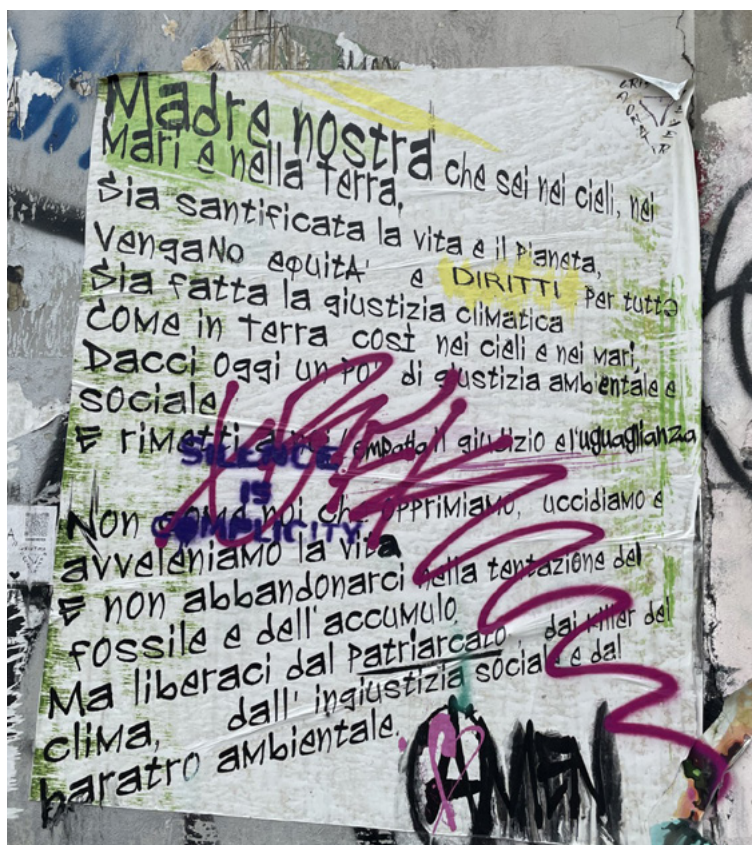 Madre nostra che sei nei cieli, nei
Mari e nella Terra,
Sia santificata la vita e il Pianeta,
VengaNo equitA' e DIRITTI Per tuttə
Sia fatta la giustizia cliMatica
COMe in Terra così nei cieli e nei Mari,
Dacci oggi un po' di giustizia aMbientale e
sociale
E riMetti a noi l'empatia il giudizio e l'uguaglianza
SILENCE
IS
COMPLICITY
Non come noi che oppriMiaMo, uccidiaMo e
avveleniaMo la vita
E non abbandonarci nella tentazione del
fossile e dell'accuMulo.
Ma liberaci dal Patriarcato, dai killer del
cliMa, dall'ingiustizia sociale e dal
baratro aMbientale.
AMEN